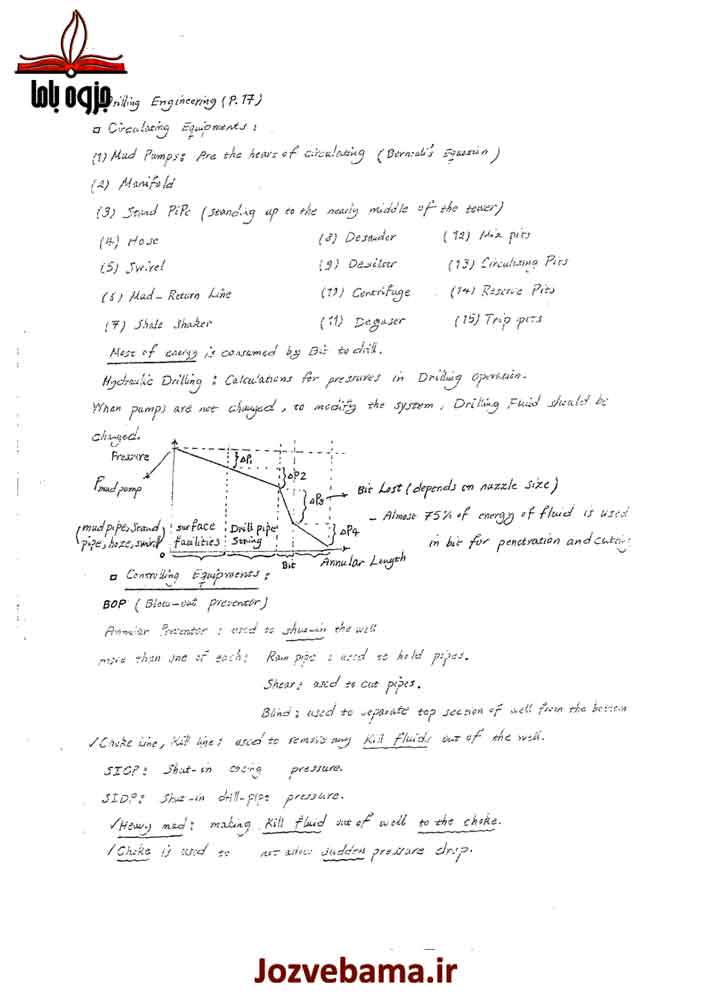 جزوه باما
Drilling Engineering (P.17)
Circulating Equipments:
(1) Mud Pumps: Are the heart of circulating (Bernouli's Equation)
(2) Manifold
(3) Stand Pipe (standing up to the nearly middle of the tower)
(4) Hose (8) Desander (12) Mix pits
(5) Swivel (9) Desilter (13) Circulating Pits
(6) Mud-Return Line (10) Centrifuge (14) Reserve Pits
(7) Shale Shaker (11) Degaser (15) Trip pits
Most of energy is consumed by Bit to drill.
Hydraulic Drilling: Calculations for pressures in Drilling operation.
When pumps are not changed, to modify the system, Drilling Fluid should be
changed.
Pressure
P mud pump
ΔP1
ΔP2
ΔP3
ΔP4
Bit Lost (depends on nozzle size)
- Almost 75% of energy of fluid is used
in bit for penetration and cutting
(mud pipe, stand pipe, hoze, swivel)
surface facilities
Drill pipe String
0
Bit
Annular Length
Controlling Equipments:
BOP (Blow-out preventor)
Annular Preventor: used to shut-in the well
more than one of each: Ram pipe: used to hold pipes.
Shear: used to cut pipes.
Blind: used to separate top section of well from the bottom
✓Choke line, Kill line: used to remove any Kill fluids out of the well.
SICP: Shut-in casing pressure.
SIDP: Shut-in drill-pipe pressure.
✓Heavy mud: making Kill fluid out of well to the choke.
✓Choke is used to not allow sudden pressure drop.
Jozvebama.ir